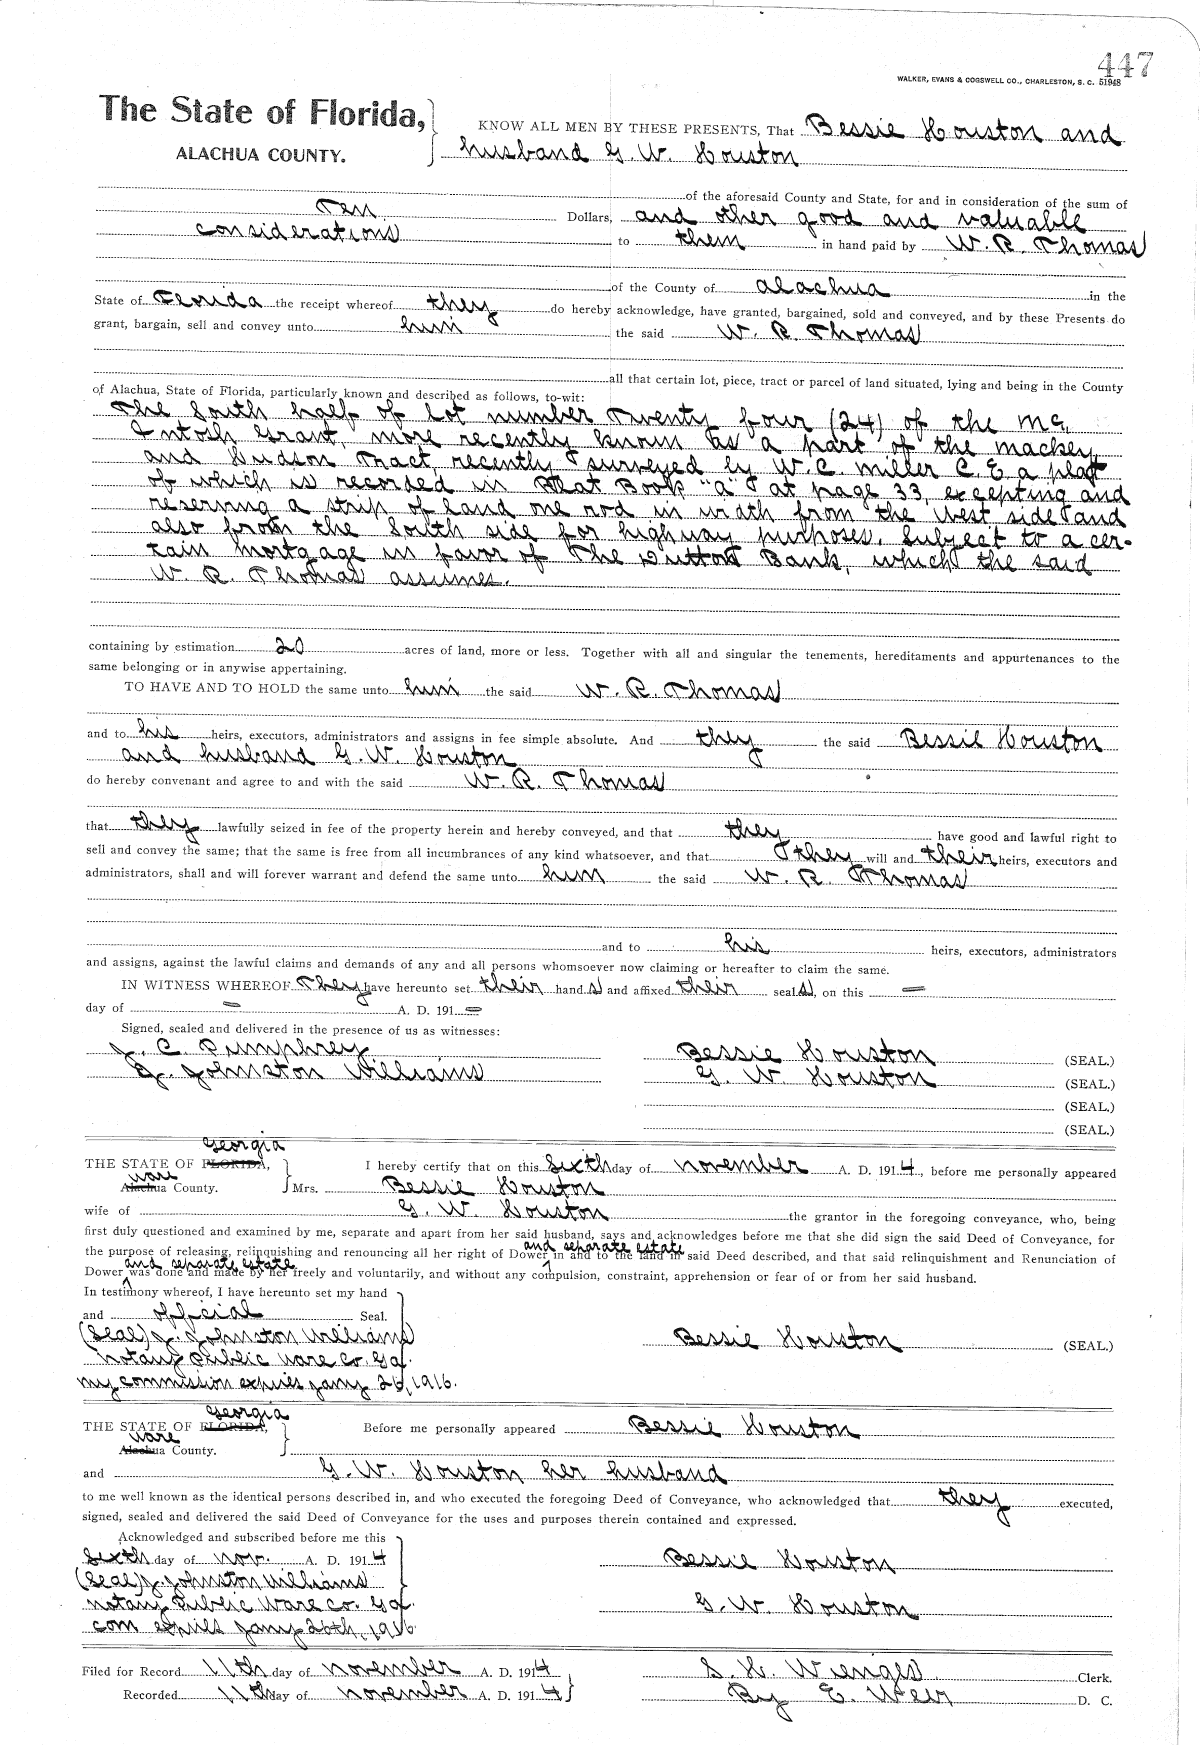 447
WALKER, EVANS & COGSWELL CO., CHARLESTON, S. C. 51948
The State of Florida,
ALACHUA COUNTY.
KNOW ALL MEN BY THESE PRESENTS, That Bessie Houston and
husband G. W. Houston
of the aforesaid County and State, for and in consideration of the sum of
Ten Dollars, and other good and valuable
considerations to them in hand paid by W. R. Thomas
of the County of Alachua in the
State of Florida the receipt whereof they do hereby acknowledge, have granted, bargained, sold and conveyed, and by these Presents do
grant, bargain, sell and convey unto him the said W. R. Thomas
all that certain lot, piece, tract or parcel of land situated, lying and being in the County
of Alachua, State of Florida, particularly known and described as follows, to-wit:
The South half of Lot number Twenty four (24) of the Mc,
Intosh Grant, more recently known as a part of the Mackey,
and Hudson Tract, recently surveyed by W. C. Miller C. E a plat
of which is recorded in Plat Book "a" at page 33, excepting and
reserving a strip of land one rod in width from the West side and
also from the South side for highway purposes. Subject to a cer-
tain mortgage in favor of The Dutton Bank, which the said
W. R. Thomas assumes.
containing by estimation 20 acres of land, more or less. Together with all and singular the tenements, hereditaments and appurtenances to the
same belonging or in anywise appertaining.
TO HAVE AND TO HOLD the same unto him the said W. R. Thomas
and to his heirs, executors, administrators and assigns in fee simple absolute. And they the said Bessie Houston
and husband G. W. Houston
do hereby convenant and agree to and with the said W. R. Thomas
that they lawfully seized in fee of the property herein and hereby conveyed, and that they have good and lawful right to
sell and convey the same; that the same is free from all incumbrances of any kind whatsoever, and that they will and their heirs, executors and
administrators, shall and will forever warrant and defend the same unto him the said W. R. Thomas
and to his heirs, executors, administrators
and assigns, against the lawful claims and demands of any and all persons whomsoever now claiming or hereafter to claim the same.
IN WITNESS WHEREOF They have hereunto set their hand s and affixed their seal s, on this —
day of — A. D. 191 —
Signed, sealed and delivered in the presence of us as witnesses:
J. C. Pumphrey Bessie Houston (SEAL.)
J. Johnston Williams G. W. Houston (SEAL.)
(SEAL.)
(SEAL.)
Georgia
THE STATE OF FLORIDA, I hereby certify that on this Sixth day of November A. D. 191 4, before me personally appeared
Ware
Alachua County. Mrs. Bessie Houston
wife of G. W. Houston the grantor in the foregoing conveyance, who, being
first duly questioned and examined by me, separate and apart from her said husband, says and acknowledges before me that she did sign the said Deed of Conveyance, for
and separate estate
the purpose of releasing, relinquishing and renouncing all her right of Dower in and to the land in said Deed described, and that said relinquishment and Renunciation of
and separate estate
Dower was done and made by her freely and voluntarily, and without any compulsion, constraint, apprehension or fear of or from her said husband.
In testimony whereof, I have hereunto set my hand
and official Seal.
(Seal) J. Johnston Williams Bessie Houston (SEAL)
Notary Public Ware Co. Ga.
my commission expires Jany 26, 1916.
Georgia
THE STATE OF FLORIDA, Before me personally appeared Bessie Houston
Ware
Alachua County.
and G. W. Houston her husband
to me well known as the identical persons described in, and who executed the foregoing Deed of Conveyance, who acknowledged that they executed,
signed, sealed and delivered the said Deed of Conveyance for the uses and purposes therein contained and expressed.
Acknowledged and subscribed before me this
Sixth day of Nov. A. D. 191 4 Bessie Houston
(Seal) J. Johnston Williams
Notary Public Ware Co. Ga. G. W. Houston
com expires Jany 26th, 1916
Filed for Record 11th day of November A. D. 191 4 S. H. Wienges Clerk.
Recorded 11th day of November A. D. 191 4 By E. Weir D. C.